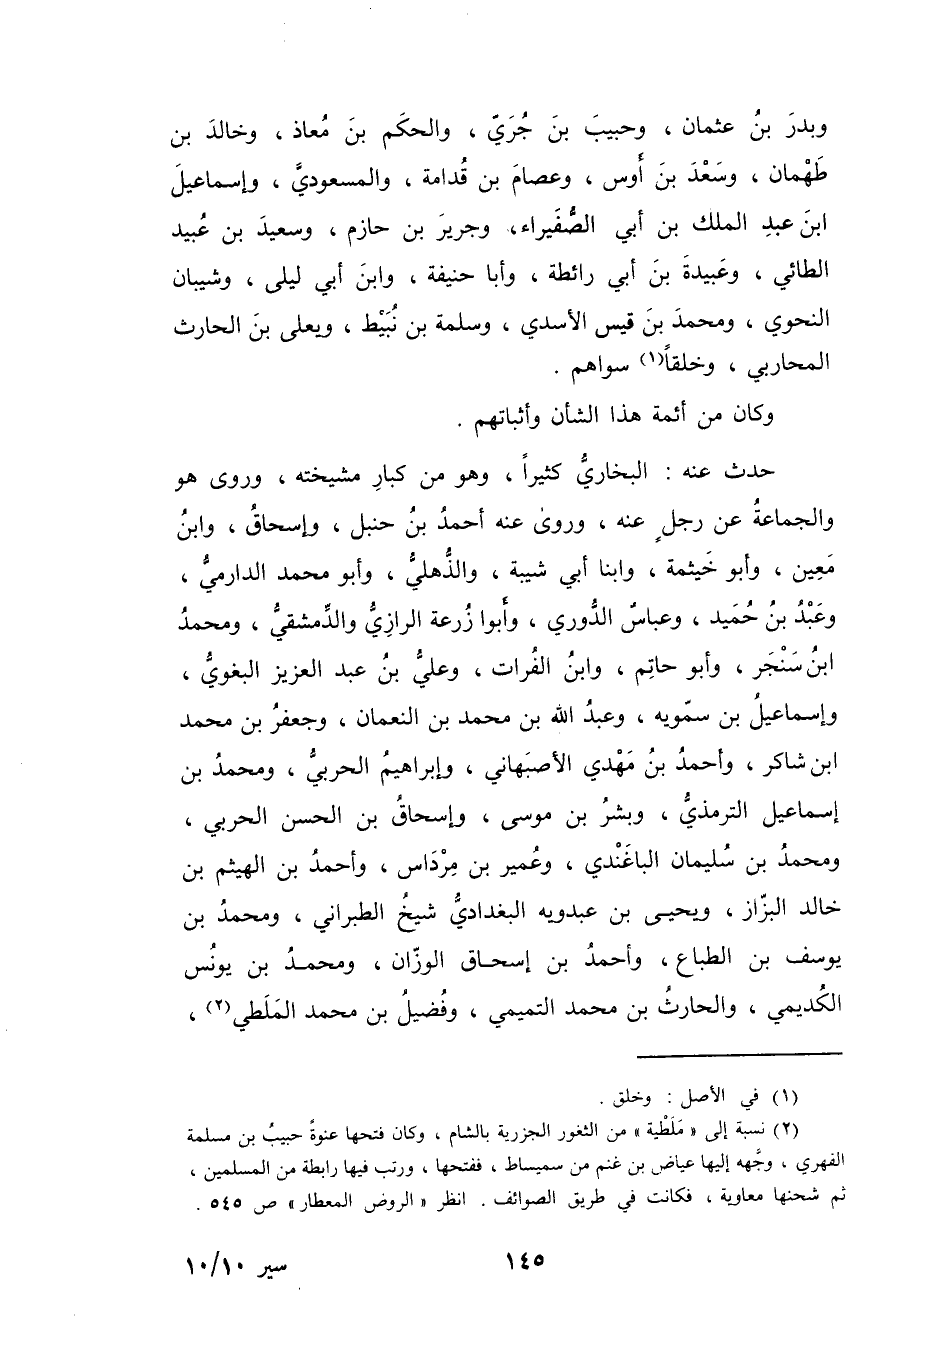 وبدرَ بنُ عثمان ، وحبيبَ بنَ جُرَيّ ، والحكَم بنَ مُعاذ ، وخالدَ بن
طَهْمان ، وسَعْدَ بنَ أَوس ، وعصامَ بن قُدامة ، والمسعوديَّ ، وإسماعيلَ
ابنَ عبدِ الملك بن أبي الصُّفَيراء، وجريرَ بن حازم ، وسعيدَ بن عُبيد
الطائي ، وعَبيدةَ بنَ أبي رائطة ، وأبا حنيفة ، وابنَ أبي ليلى ، وشيبان
النحوي ، ومحمدَ بنَ قيس الأسدي ، وسلمة بن نُبَيْط ، ويعلى بنَ الحارث
المحاربي ، وخلقاً(١) سواهم .
وكان من أئمة هذا الشأن وأثباتهم .
حدث عنه : البخاريُّ كثيراً ، وهو من كبارِ مشيخته ، وروى هو
والجماعةُ عن رجلٍ عنه ، وروىٰ عنه أحمدُ بنُ حنبل ، وإسحاقُ ، وابنُ
مَعِين ، وأبو خَيثمة ، وابنا أبي شيبة ، والذُّهليُّ ، وأبو محمد الدارميُّ ،
وعَبْدُ بنُ حُمَيد ، وعباسٌ الدُّوري ، وأَبوا زُرعة الرازِيُّ والدِّمشقيُّ ، ومحمدُ
ابنُ سَنْجَر ، وأبو حاتِم ، وابنُ الفُرات ، وعليُّ بنُ عبد العزيز البغويُّ ،
وإسماعيلُ بن سمّويه ، وعبدُ الله بن محمد بن النعمان ، وجعفرُ بن محمد
ابن شاكر ، وأحمدُ بنُ مَهْدي الأصبَهاني ، وإبراهيمُ الحربيُّ ، ومحمدُ بن
إسماعيل الترمذيُّ ، وبشرُ بن موسى ، وإسحاقُ بن الحسن الحربي ،
ومحمدُ بن سُليمان الباغَندي ، وعُمير بن مِرْدَاس ، وأحمدُ بن الهيثم بن
خالد البزّاز ، ويحيـى بن عبدويه البغداديُّ شيخُ الطبراني ، ومحمدُ بن
يوسف بن الطباع ، وأحمدُ بن إسحـاق الوزّان ، ومحمـدُ بن يونُس
الكُديمي ، والحارثُ بن محمد التميمي ، وفُضيلُ بن محمد المَلَطي(٢) ،
(١) في الأصل : وخلق .
(٢) نسبة إلى « مَلَطْية » من الثغور الجزرية بالشام ، وكان فتحها عنوةً حبيبُ بن مسلمة
الفهري ، وجَّهه إليها عياض بن غنم من سميساط ، ففتحها ، ورتب فيها رابطة من المسلمين ،
ثم شحنها معاوية ، فكانت في طريق الصوائف . انظر « الروض المعطار » ص ٥٤٥ .
١٤٥
سير ١٠/١٠